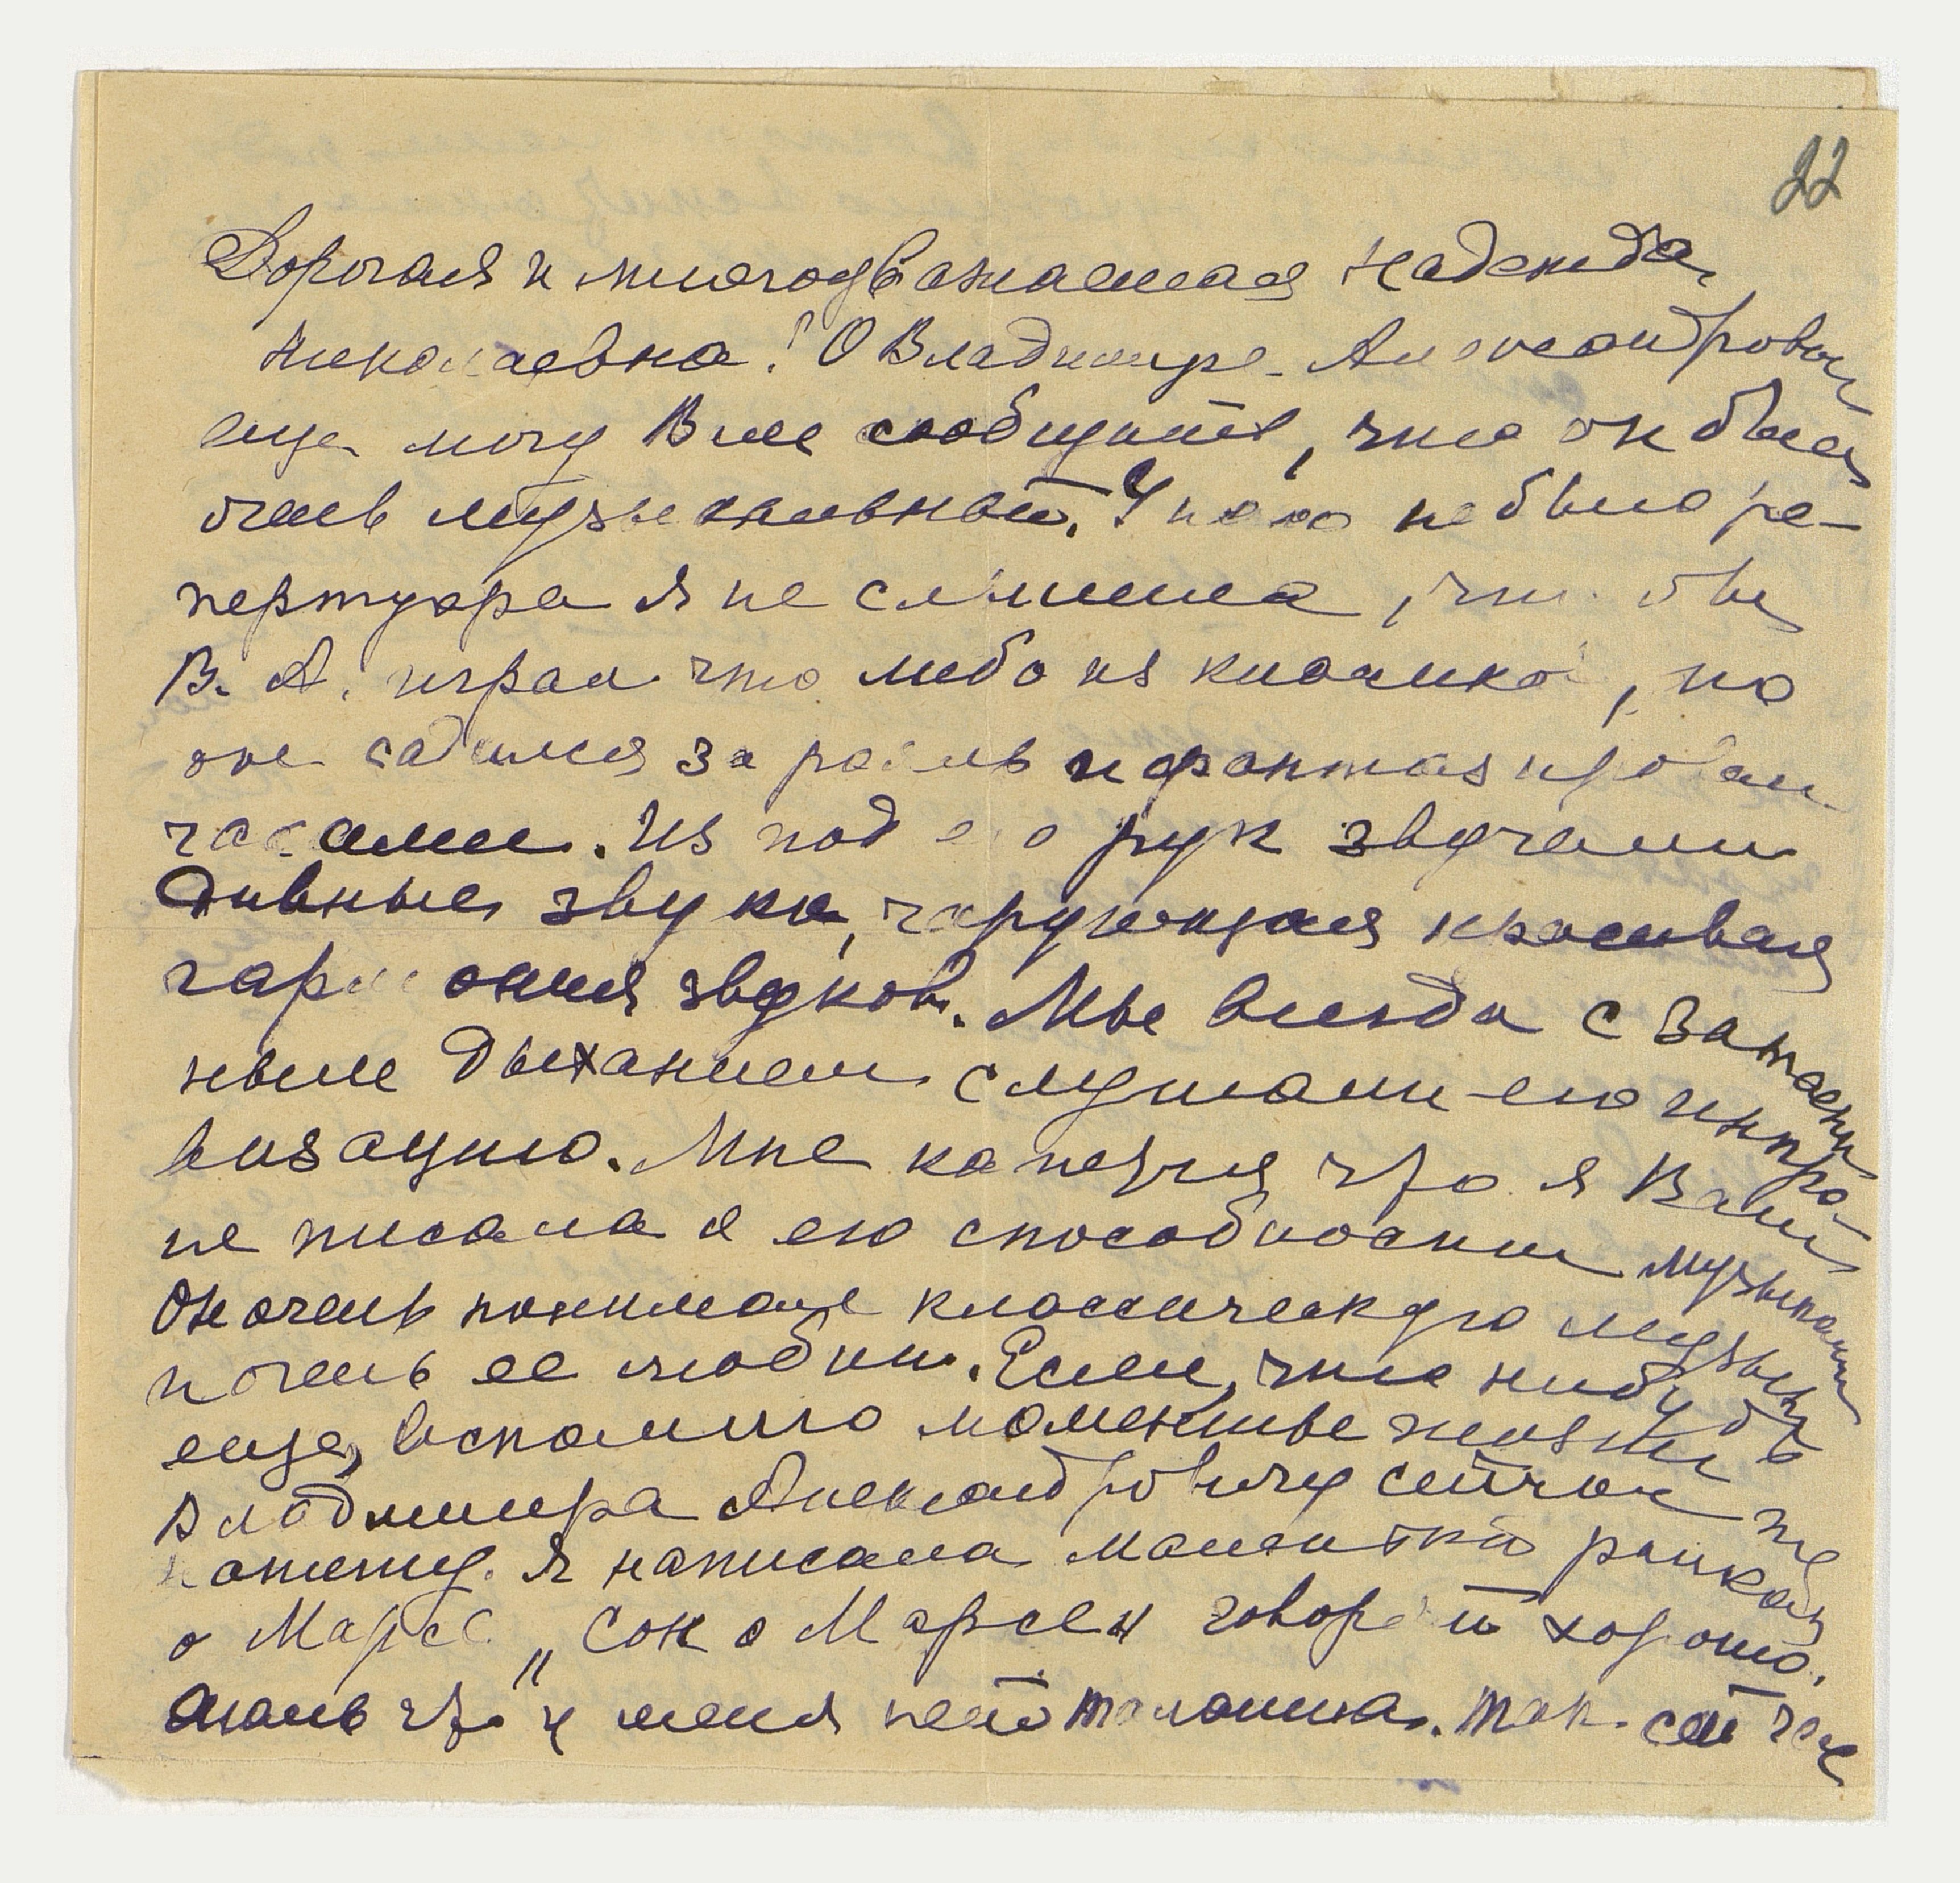 22
Дорогая и многоуважаемая Надежда
Николаевна! О Владимире Александрович
еще могу Вам сообщить, что он был
очень музыкальной. У него не было ре-
пертуара я не слышала, что бы
В. А. играл что либо из классиков, но
он садился за рояль и фантазировал
часами. Из под его рук звучали
дивные звуки, чарующая красивая
гармония звуков. Мы всегда с затаен
ным дыханием слушали его импро-
визацию. Мне кажется что я Вам
не писала о его способности музыкант
Он очень понимал классическую музыку
и очень ее любил. Если, что нибудь
еще, вспомню моменты жизни
Владимира Александровичу сейчас не
напишу. Я написала маленький рассказ
о Марсе „Сон о Марсе" говорят хорошо.
Жаль что у меня нет таланта. Так сейчас